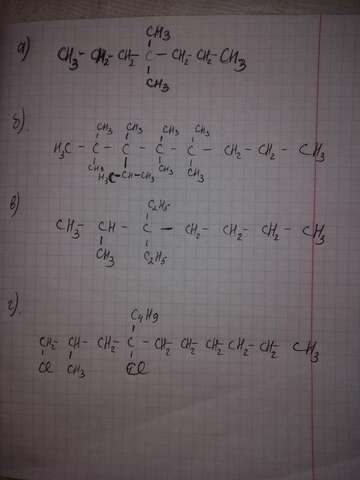 а)
CH3
CH3 - CH2 - CH2 - C - CH2 - CH2 - CH3
CH3
б).
CH3 CH3 CH3 CH3
H3C - C - C - C - C - CH2 - CH2 - CH3
CH3 CH3 CH3
H3C - CH - CH3
в)
C2H5
CH3 - CH - C - CH2 - CH2 - CH2 - CH3
CH3 C2H5
г).
C4H9
CH2 - CH - CH2 - C - CH2 - CH2 - CH2 - CH2 - CH2 - CH3
Cl CH3 Cl